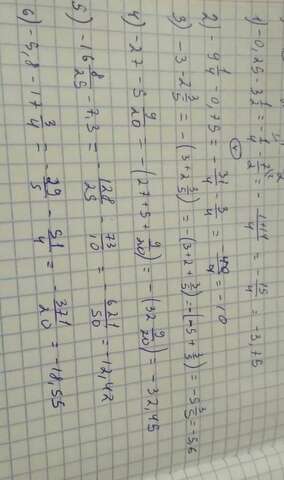 1) -0,25 - 3 1/2 = - 1/4 - 7/2 = - 1+14/4 = - 15/4 = -3,75
2) -9 1/4 - 0,75 = - 37/4 - 3/4 = - 40/4 = -10
3) -3 - 2 3/5 = -(3+2 3/5) = -(3+2+3/5) = -(-5+3/5) = -5 3/5 = -5,6
4) -27 - 5 9/20 = -(27+5+9/20) = -(32 9/20) = -32,45
5) -16 8/25 - 7,3 = - 128/25 - 73/10 = - 621/50 = -12,42
6) -5,8 - 17 3/4 = - 29/5 - 51/4 = - 371/20 = -18,55